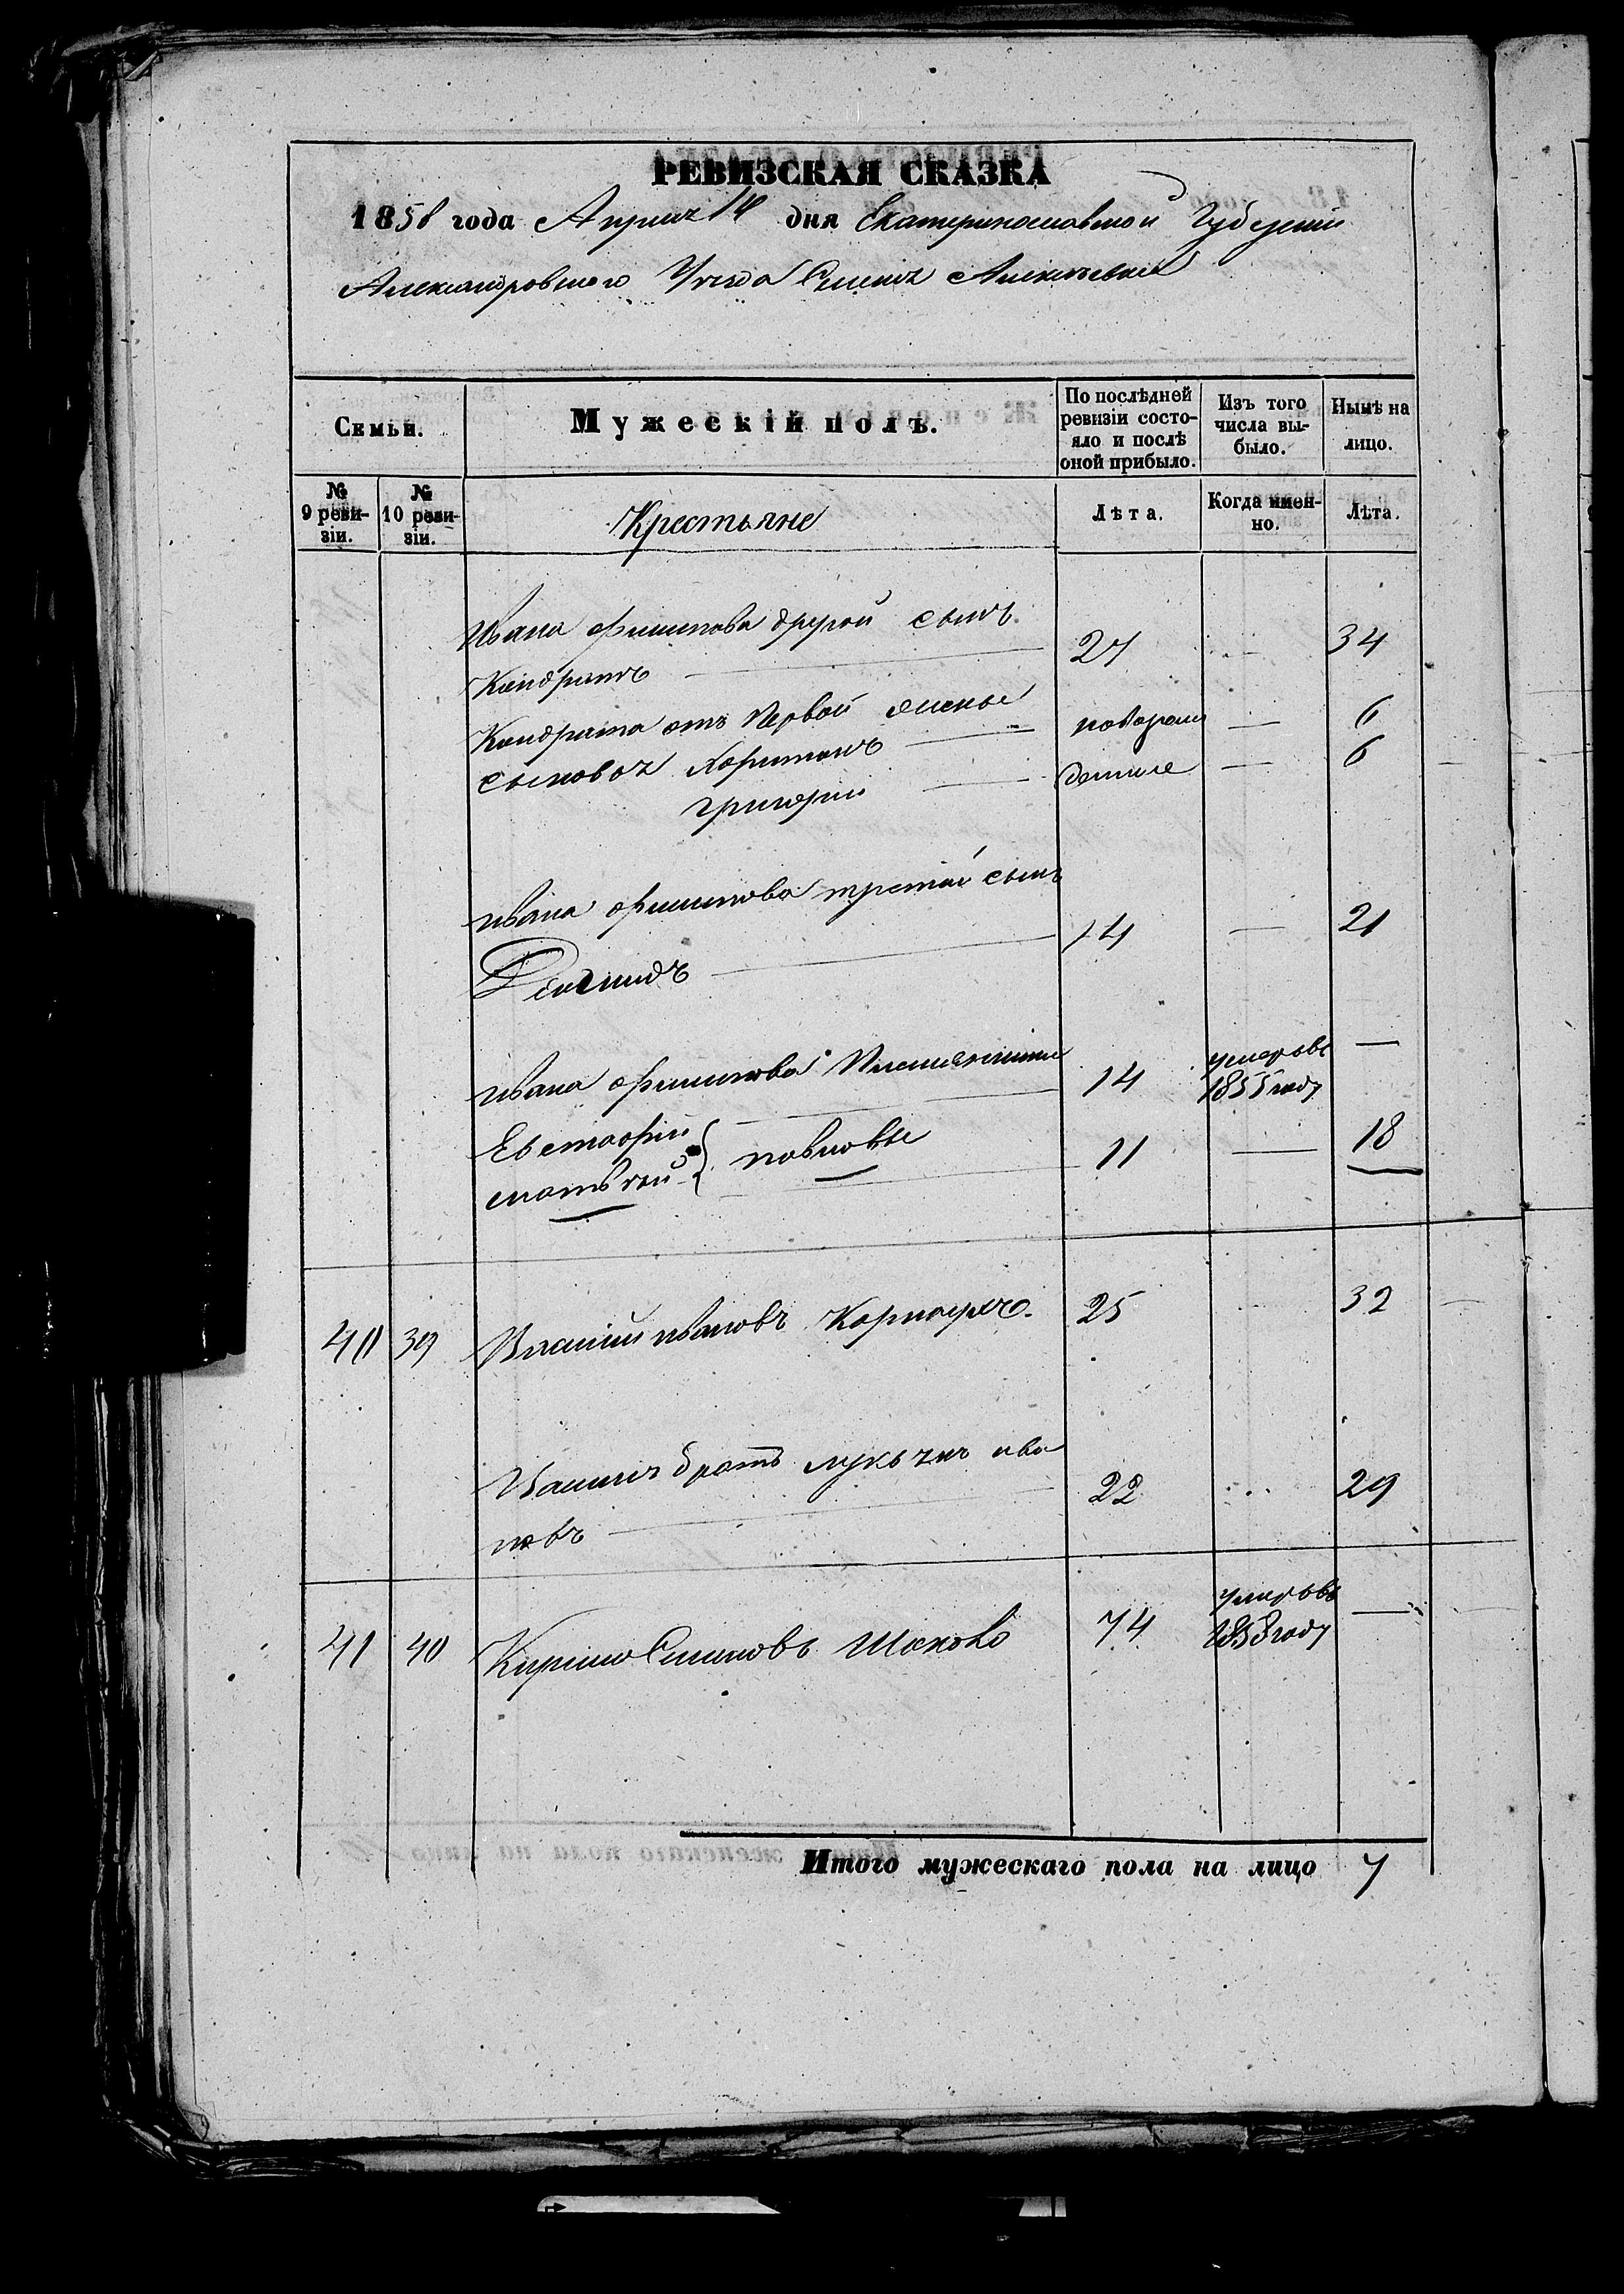 РЕВИЗСКАЯ СКАЗКА
1858 года Апреля 14 дня Екатеринославской Губернии
Александровского Уезда Алексеевки
Семьи.
Мужескій полъ.
По послѣдней ревизіи состояло и послѣ оной прибыло.
Изъ того числа выбыло.
Нынѣ на лицо.
№ 9 ревизіи.
№ 10 ревизіи.
Крестьяне
Лѣта.
Когда именно.
Лѣта.
Ивана Филипова другой сынъ
Кондратъ 27 — 34
Кондрата отъ первой жены — 6
сыновья Харитонъ
Григорій — 6
Ивана Филипова третій сынъ 14 — 21
Леонидъ
Ивана Филипова племянники 14 умеръ въ 1855 году —
Евстафій
Матвей } Павловы 11 — 18
40 39 Власій Ивановъ Корноухъ 25 32
Власія братъ Лукьянъ Ива
новъ 22 29
41 40 Кирило 74 умеръ въ 1858 году —
Итого мужескаго пола на лицо 7